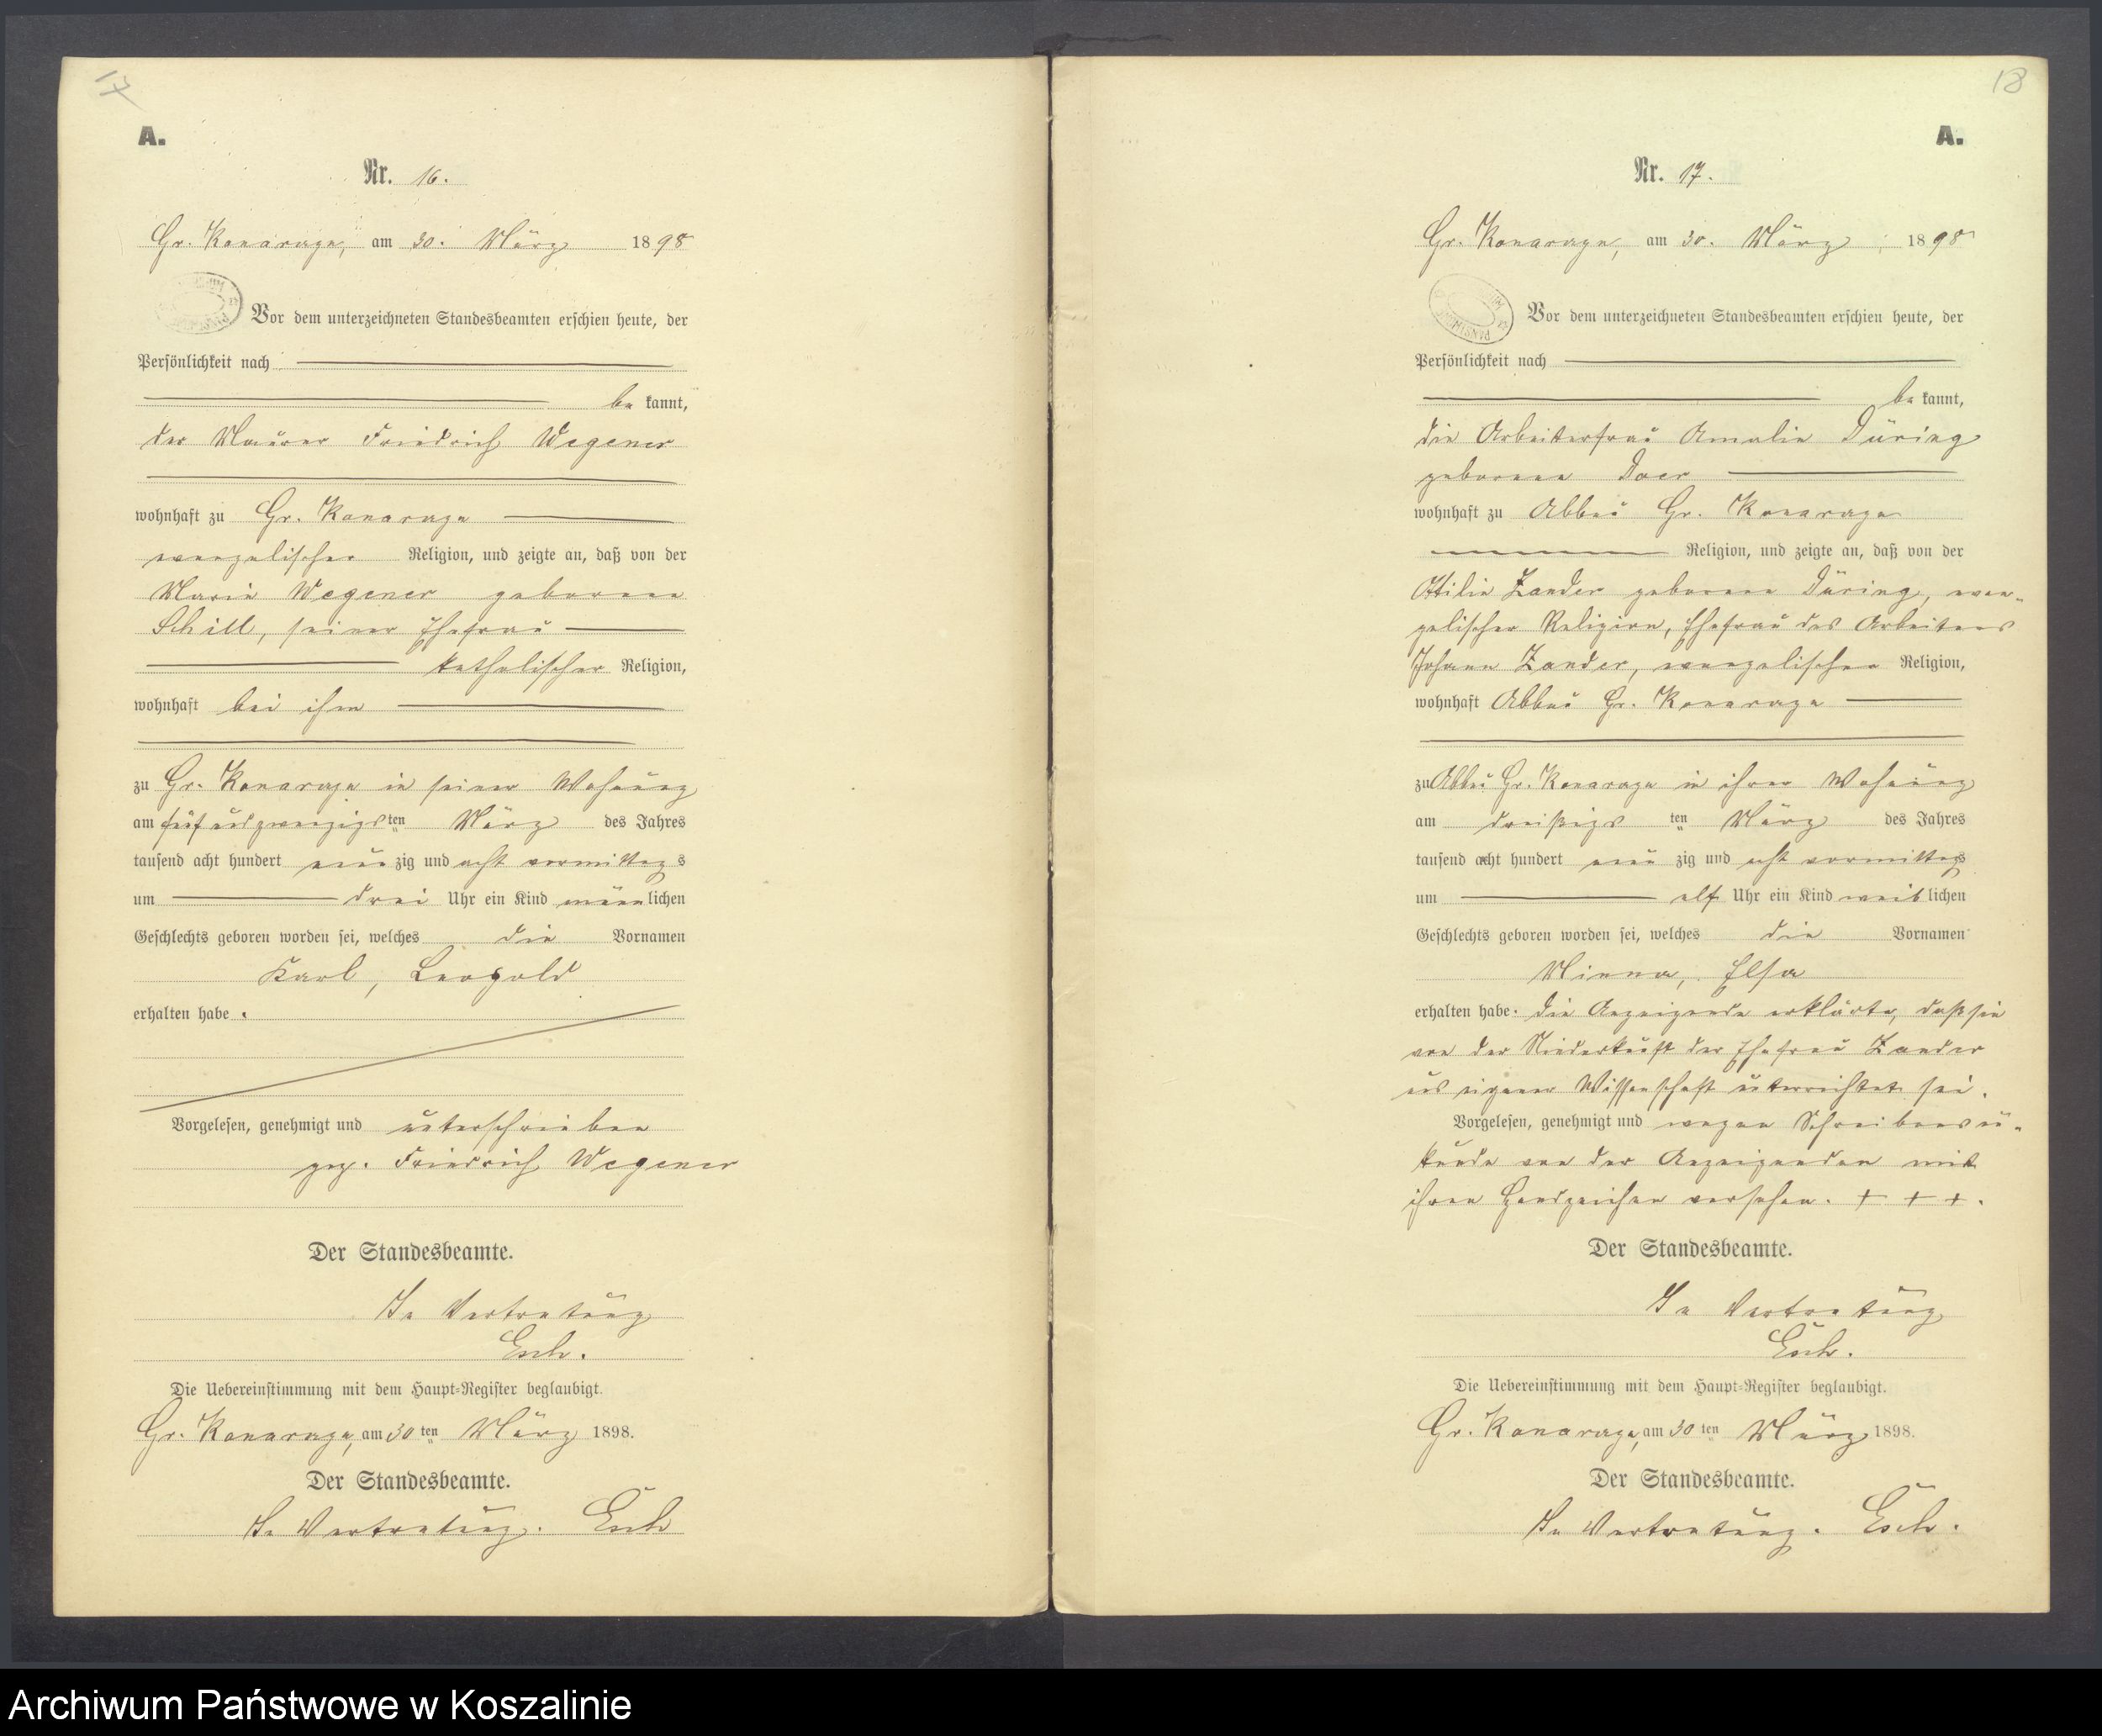 17
A.
Nr. 16.
Gr. Konarzyn, am 30. März 1898
Vor dem unterzeichneten Standesbeamten erschien heute, der
Persönlichkeit nach
be kannt,
der Maurer Friedrich Wegener
wohnhaft zu Gr. Konarzyn
evangelischer Religion, und zeigte an, daß von der
Marie Wegener geborene
Schill, seiner Ehefrau
katholischer Religion,
wohnhaft bei ihm
zu Gr. Konarzyn in seiner Wohnung
am fünfundzwanzigsten März des Jahres
tausend acht hundert neunzig und acht vormittags
um drei Uhr ein Kind männlichen
Geschlechts geboren worden sei, welches die Vornamen
Karl, Leopold
erhalten habe.
Vorgelesen, genehmigt und unterschrieben
gez. Friedrich Wegener
Der Standesbeamte.
In Vertretung
Esch.
Die Uebereinstimmung mit dem Haupt-Register beglaubigt.
Gr. Konarzyn, am 30 ten März 1898.
Der Standesbeamte.
In Vertretung. Esch
18
A.
Nr. 17.
Gr. Konarzyn, am 30. März 1898
Vor dem unterzeichneten Standesbeamten erschien heute, der
Persönlichkeit nach
be kannt,
die Arbeiterfrau Amalie Düring
geborene
wohnhaft zu Abbau Gr. Konarzyn
Religion, und zeigte an, daß von der
Ottilie Zander geborene Düring, evan-
gelischer Religion, Ehefrau des Arbeiters
Johann Zander, evangelischer Religion,
wohnhaft Abbau Gr. Konarzyn
zu Abbau Gr. Konarzyn in ihrer Wohnung
am dreißigsten März des Jahres
tausend acht hundert neun zig und acht vormittags
um elf Uhr ein Kind weiblichen
Geschlechts geboren worden sei, welches die Vornamen
Minna, Elsa
erhalten habe. Die Anzeigende erklärte, daß sie
von der Niederkunft der Ehefrau Zander
aus eigener Wissenschaft unterrichtet sei.
Vorgelesen, genehmigt und wegen Schreibensun-
kunde von der Anzeigenden mit
ihren Handzeichen versehen. + + +.
Der Standesbeamte.
In Vertretung
Esch.
Die Uebereinstimmung mit dem Haupt-Register beglaubigt.
Gr. Konarzyn, am 30 ten März 1898.
Der Standesbeamte.
In Vertretung. Esch.
Archiwum Państwowe w Koszalinie